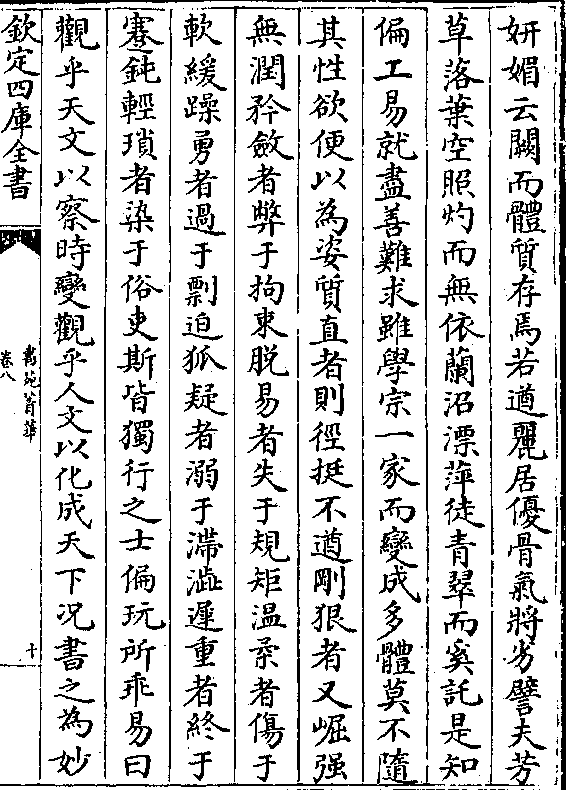 妍媚云闕而體質存焉若遒麗居優骨氣將劣譬夫芳
草落葉空照灼而無依蘭沼漂萍徒青翠而奚託是知
偏工易就盡善難求雖學宗一家而變成多體莫不隨
其性欲便以為姿質直者則徑挺不遒剛狠者又崛强
無潤矜斂者弊于拘束脱易者失于規矩温柔者傷于
軟緩躁勇者過于剽迫狐疑者溺于滯澁遲重者終于
蹇鈍輕瑣者染于俗吏斯皆獨行之士偏玩所乖易曰
觀乎天文以察時變觀乎人文以化成天下况書之為妙
欽定四庫全書
書苑菁華
卷八
十